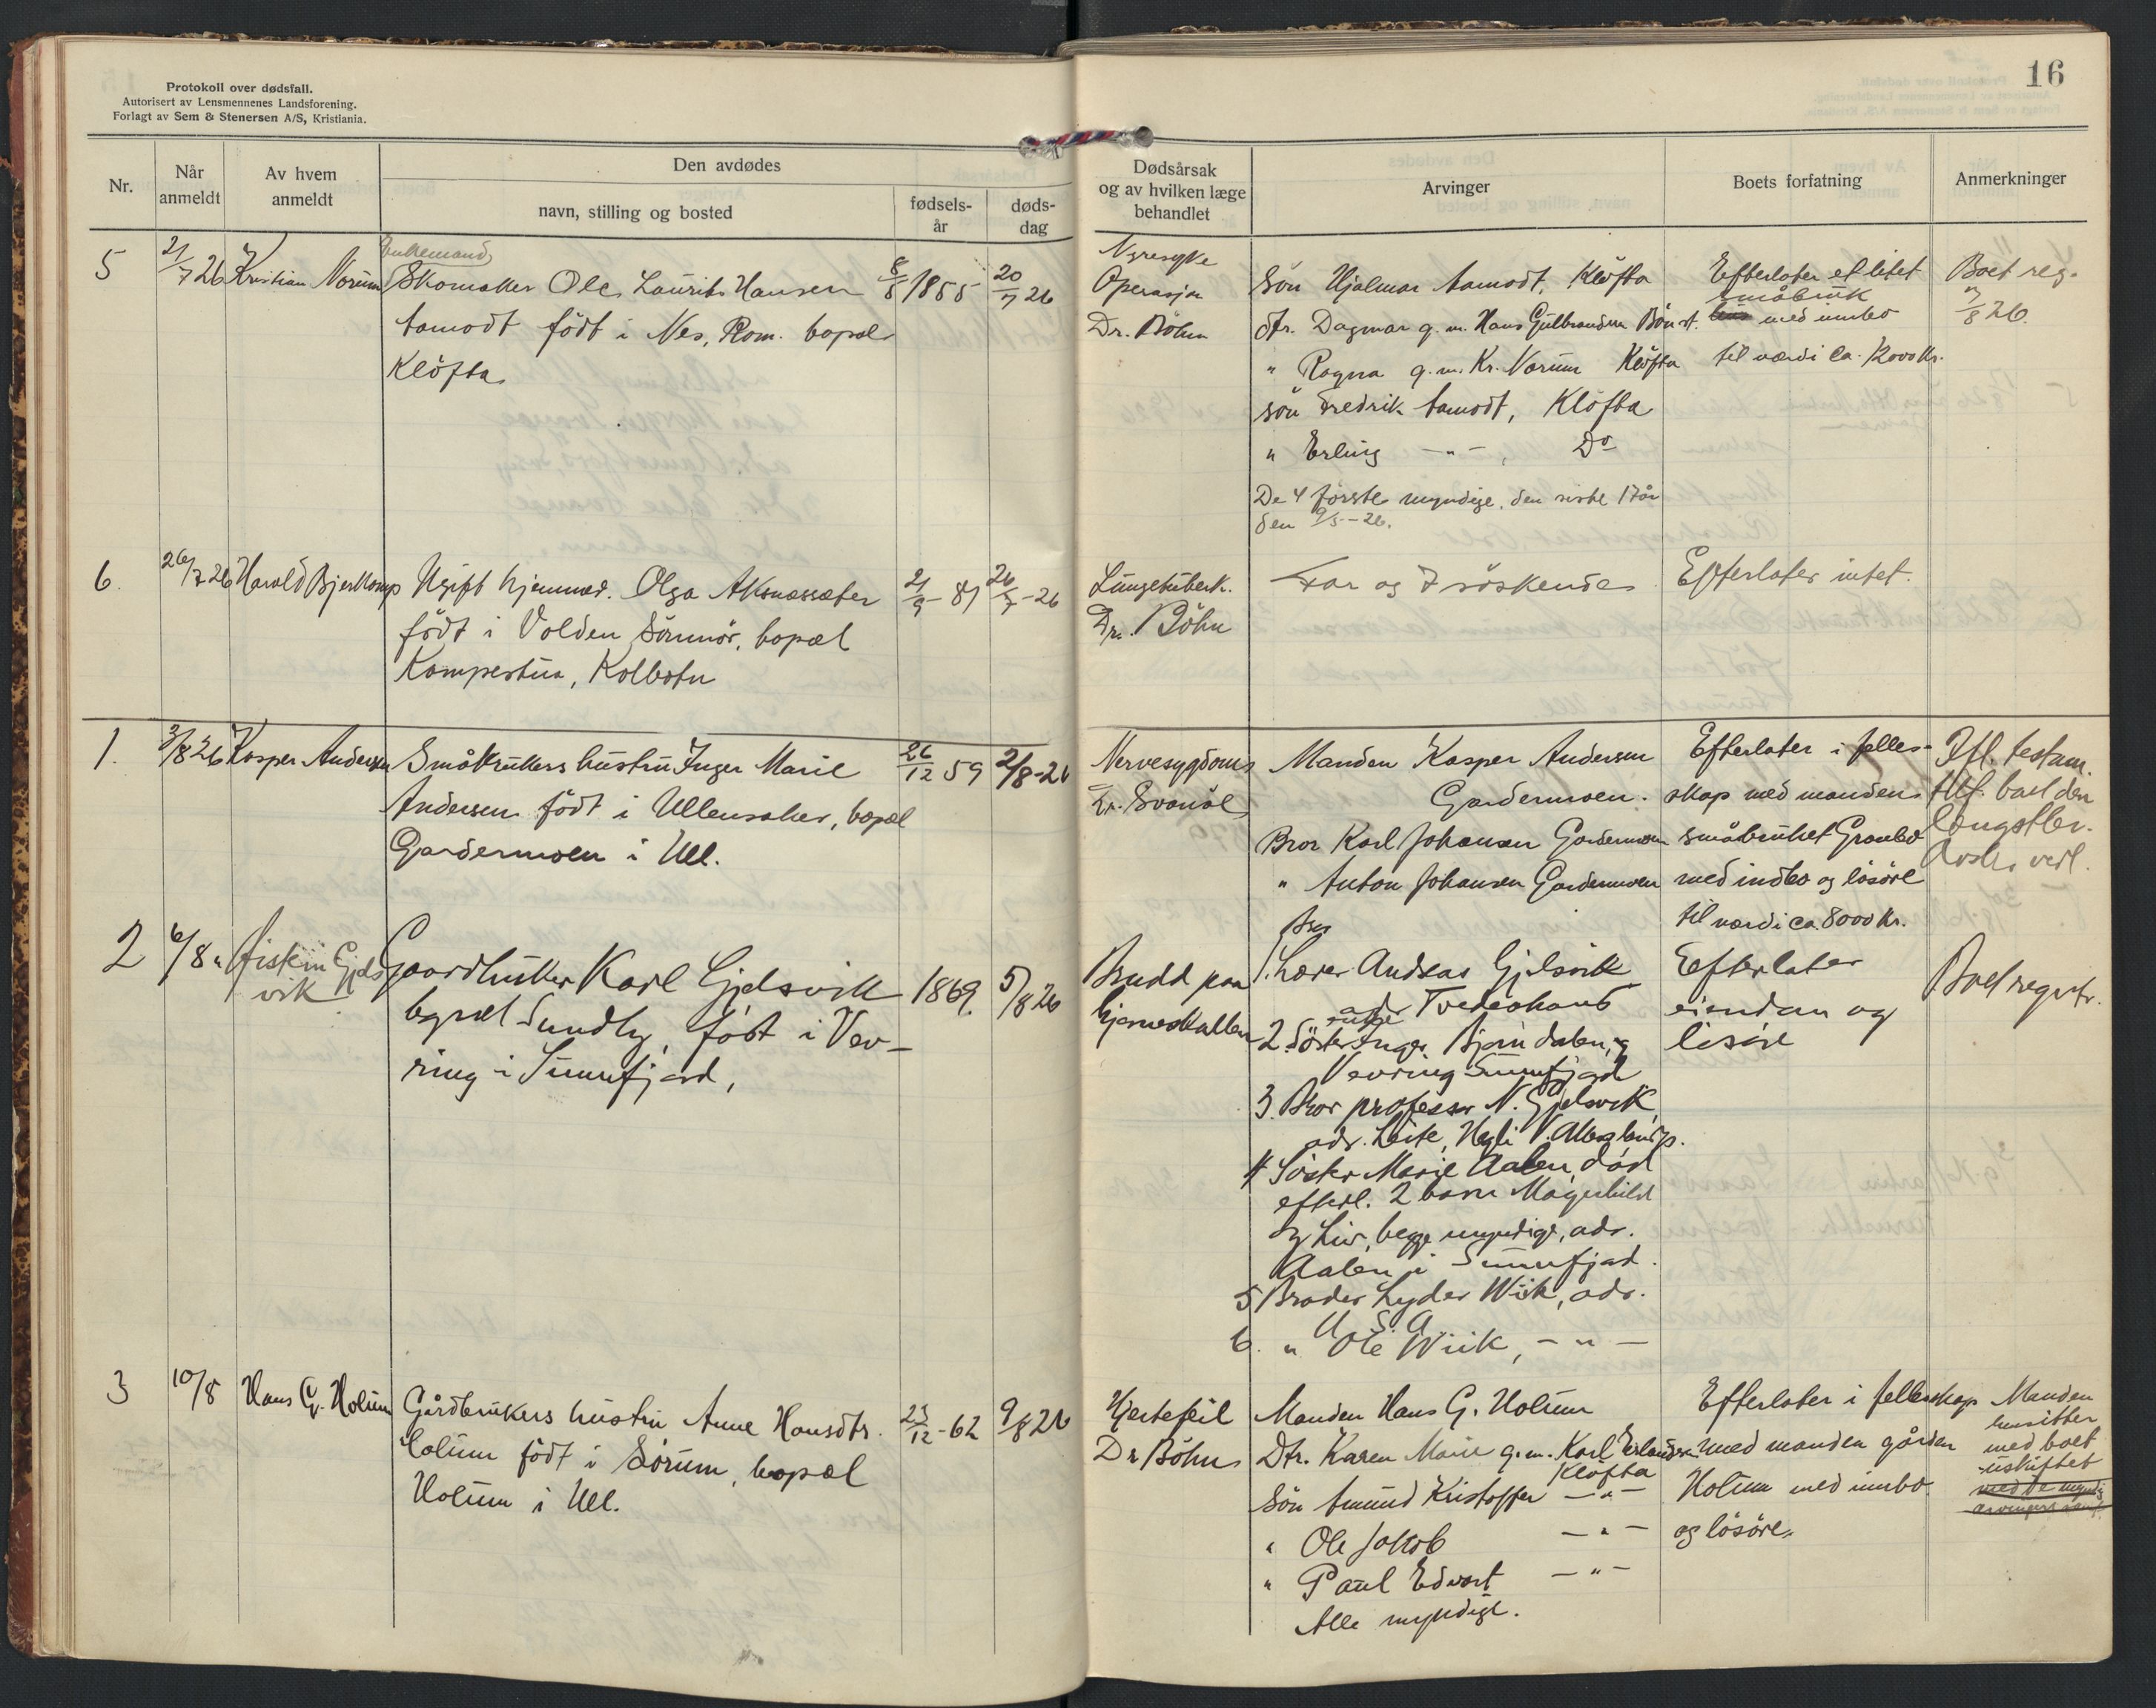 Protokoll over dødsfall.
Autorisert av Lensmennenes Landsforening.
Forlagt av Sem & Stenersen A/S, Kristiania.
16
Nr.
Når anmeldt
Av hvem anmeldt
Den avdødes
navn, stilling og bosted
fødsels-år
døds-dag
Dødsårsak og av hvilken læge behandlet
Arvinger
Boets forfatning
Anmerkninger
5
21/7 26
Kristian Norum
Enkemand
Skomaker Ole Laurits Hansen
Aamodt født i Nes, Rom. bopæl
Kløfta
8/8 1855
20/7 26
Nyresyke
Operasjon
Dr. Böhn
Søn Hjalmar Aamodt, Kløfta
dtr. Dagmar g.m. Hans Gulbrandsen Bön st.
" Ragna g.m. Kr. Norum Kløfta
søn Fredrik Aamodt, Kløfta
" Erling - " - , Do
De 4 første myndige, den siste 17 år
den 9/5-26.
Efterlater et litet
småbruk
med innbo
til værdi ca. 12000 kr.
Boet reg.
/8 26.
6.
26/7 26
Harold Bjerkkamp
Ugift hjemmev. Olga Aksnessæter
født i Volden Sörmör, bopæl
Kompestua, Kolbotn
21/9 - 81
26/7 - 26
Lungetuberk.
Dr. Böhn
Far og 7 söskende
Efterlater intet.
1.
3/8 26
Kasper Andersen
Småbrukers hustru Inger Marie
Andersen født i Ullensaker, bopæl
Gardermoen i Ull.
26/12 59
2/8-26
Nervesygdom
Dr. Svanöe
Manden Kasper Andersen
Gardermoen.
Bror Karl Johansen Gardermoen
" Anton Johansen Gardermoen
Efterlater i felles-
skap med manden
småbruket Granbo
med indbo og lösöre
til værdi ca. 8000 kr.
Ifl. testam.
tilf. boet den
lengstlev.
2
6/8 "
Askim Gjels
vik
Gaardbruker Karl Gjelsvik
bopæl Sundby, født i Vev-
ring i Sunnfjord,
1869.
5/8 26
Brudd paa
hjerneskallen
1. Lærer Andreas Gjelsvik
adr Tvedestrand
2. Söster Inger Bjørndalen,
Vevring Sunnfjord
3. Bror professor N. Gjelsvik,
adr. Leite, Hegli V. Aker landsp.
4 Söster Marie Aalen död
efterl. 2 barn Magnhild
og Liv, begge myndige, adr.
Aalen i Sunnfjord.
5 Broder Lyder Wiik, adr.
U S A
6. " Ole Wiik, - " -
Efterlater
eiendom og
lösöre
Boet registr.
3
10/8
Hans G. Holum
Gårdbrukers hustru Anne Hansdtr.
Holum født i Sörum, bopæl
Holum i Ull.
23/12 - 62
9/8 26
Hjertefeil
Dr Böhn
Manden Hans G. Holum
Dtr. Karen Marie g.m. Karl Erlandsen
Kløfta
Søn Amund Kristoffer - " -
" Ole Jakob - " -
" Paul Edvart - " -
Alle myndige.
Efterlater i fellesskap
med manden gården
Holum med innbo
og lösöre.
Manden
hensitter
med boet
uskiftet
med de myndig
arvingers samt.